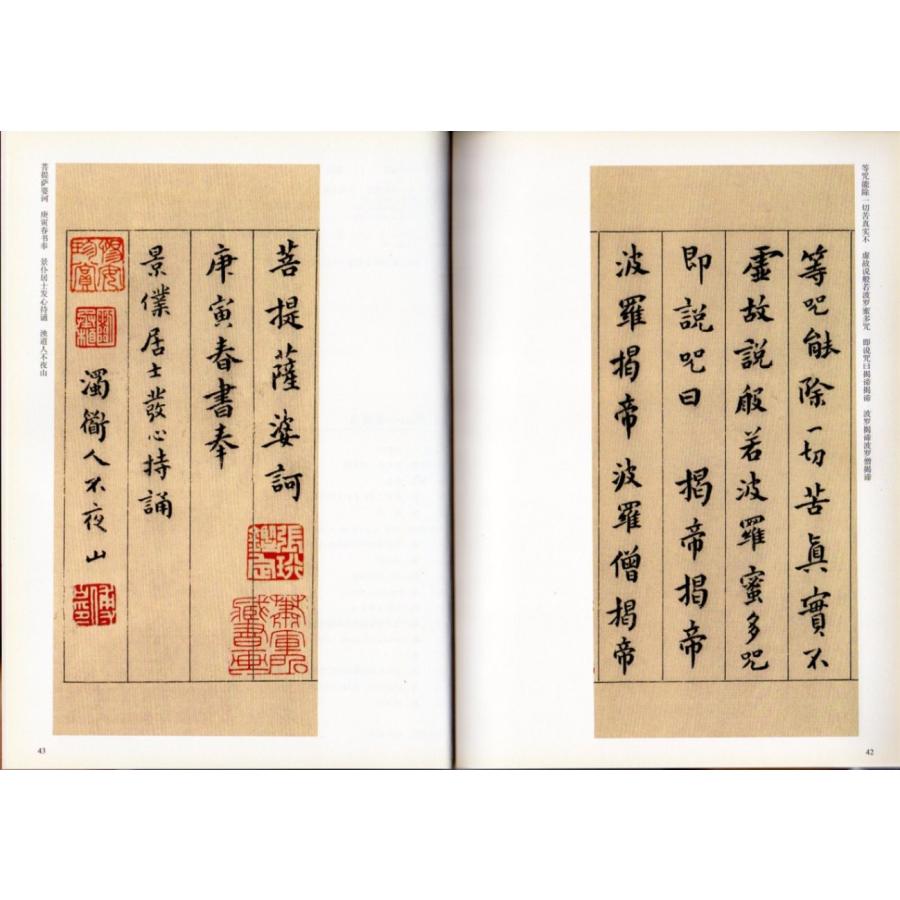 等咒能除一切苦真实不　虚故说般若波罗蜜多咒　即说咒曰揭谛揭谛　波罗揭谛波罗僧揭谛
等咒能除一切苦眞實不
虛故說般若波羅蜜多咒
即說咒曰 揭帝揭帝
波羅揭帝波羅僧揭帝
42
菩提薩婆訶
庚寅春書奉
景僕居士發心持誦
濁衟人不夜山
菩提萨婆诃　庚寅春书奉　景仆居士发心持诵　浊道人不夜山
43